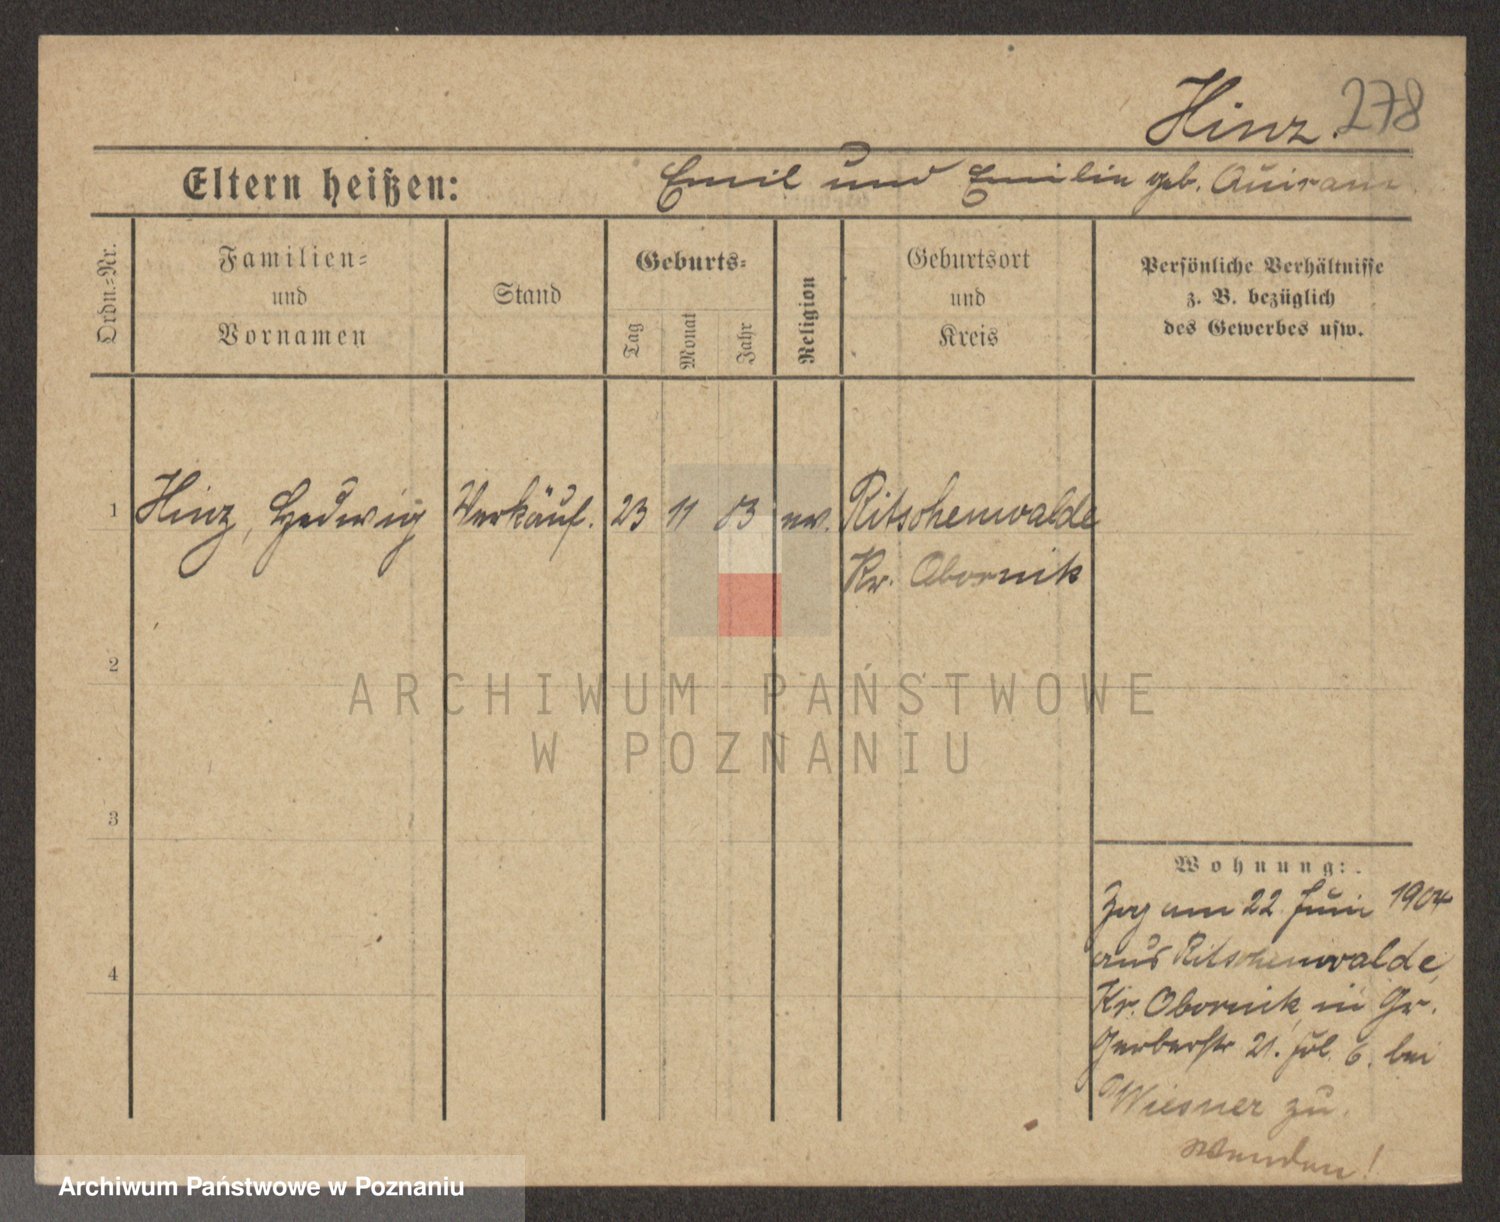 Hinz. 278
Eltern heißen: Emil und Emilie geb. Quiram
Ordn.-Nr.
Familien-
und
Vornamen
Stand
Geburts-
Tag
Monat
Jahr
Religion
Geburtsort
und
Kreis
Persönliche Verhältnisse
z. B. bezüglich
des Gewerbes usw.
1 Hinz, Hedwig Verkäuf. 23 11 83 ev. Ritschenwalde
Kr. Obornik
2
3
4
Wohnung:
Zog am 22 Juni 1904
aus Ritschenwalde,
Kr. Obornik, in Gr.
Gerberstr 21. 6. bei
Wiesner zu.
wenden!
ARCHIWUM PAŃSTWOWE
W POZNANIU
Archiwum Państwowe w Poznaniu